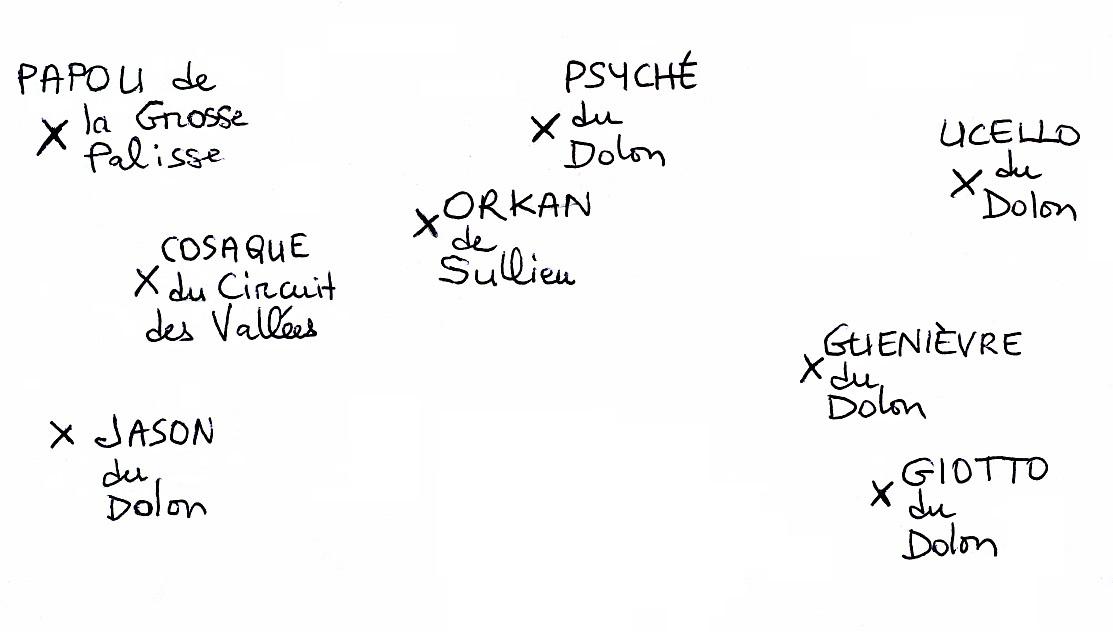 PAPOU de
X la Grosse
Palisse
PSYCHÉ
X du
Dolon
UCELLO
X du
Dolon
X ORKAN
de
Sullieu
COSAQUE
X du Circuit
des Vallées
GUENIÈVRE
X du
Dolon
X JASON
du
Dolon
GIOTTO
X du
Dolon